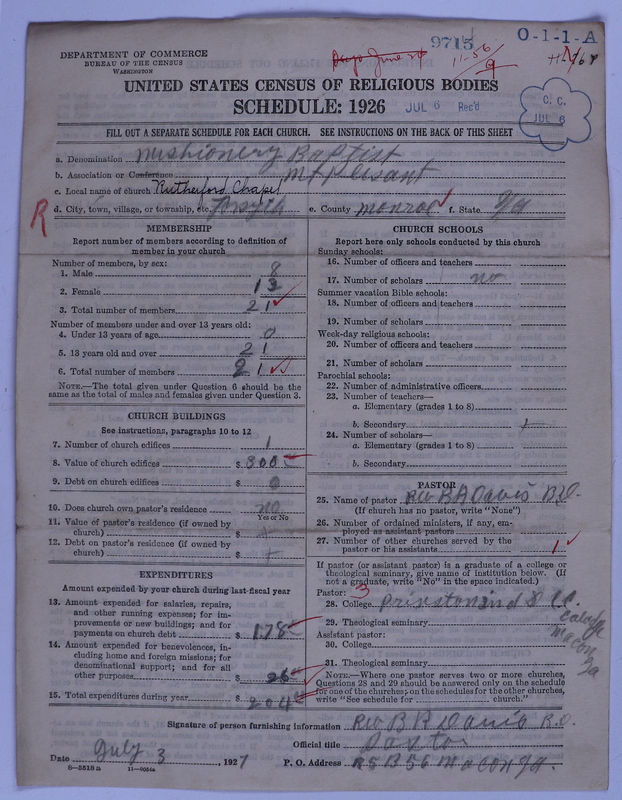 DEPARTMENT OF COMMERCE
BUREAU OF THE CENSUS
WASHINGTON
9715
11-56
9
O-1-1-A
UNITED STATES CENSUS OF RELIGIOUS BODIES
SCHEDULE: 1926
JUL 6 Rec'd
C. C.
JUL 6
FILL OUT A SEPARATE SCHEDULE FOR EACH CHURCH. SEE INSTRUCTIONS ON THE BACK OF THIS SHEET
a. Denomination Misshionery Baptist
b. Association or Conference Mt Plesant
c. Local name of church Rutherford Chapel
R
d. City, town, village, or township, etc. Forsyth e. County Monroe f. State Ga
MEMBERSHIP
Report number of members according to definition of member in your church
Number of members, by sex:
1. Male 8
2. Female 13
3. Total number of members 21
Number of members under and over 13 years old:
4. Under 13 years of age 0
5. 13 years old and over 21
6. Total number of members 21
NOTE.—The total given under Question 6 should be the same as the total of males and females given under Question 3.
CHURCH BUILDINGS
See instructions, paragraphs 10 to 12
7. Number of church edifices 1
8. Value of church edifices $ 300
9. Debt on church edifices $ 0
10. Does church own pastor's residence no
Yes or No
11. Value of pastor's residence (if owned by church) $
12. Debt on pastor's residence (if owned by church) $
EXPENDITURES
Amount expended by your church during last fiscal year
13. Amount expended for salaries, repairs, and other running expenses; for improvements or new buildings; and for payments on church debt $ 178
14. Amount expended for benevolences, including home and foreign missions; for denominational support; and for all other purposes $ 26
15. Total expenditures during year $ 204
CHURCH SCHOOLS
Report here only schools conducted by this church
Sunday schools:
16. Number of officers and teachers
17. Number of scholars no
Summer vacation Bible schools:
18. Number of officers and teachers
19. Number of scholars
Week-day religious schools:
20. Number of officers and teachers
21. Number of scholars
Parochial schools:
22. Number of administrative officers
23. Number of teachers—
a. Elementary (grades 1 to 8)
b. Secondary
24. Number of scholars—
a. Elementary (grades 1 to 8)
b. Secondary
PASTOR
25. Name of pastor Rev B A Davis B.D.
(If church has no pastor, write "None")
26. Number of ordained ministers, if any, employed as assistant pastors
27. Number of other churches served by the pastor or his assistants 1
If pastor (or assistant pastor) is a graduate of a college or theological seminary, give name of institution below. (If not a graduate, write "No" in the space indicated.)
Pastor: 3
28. College
29. Theological seminary
Macon Ga
Assistant pastor:
30. College
31. Theological seminary
NOTE.—Where one pastor serves two or more churches, Questions 28 and 29 should be answered only on the schedule for one of the churches; on the schedules for the other churches, write "See schedule for church."
Signature of person furnishing information Rev B A Davis B.D.
Official title Pastor
Date July 3, 1927 P. O. Address R5 B56 Macon Ga.
8—5518a 11—9054a